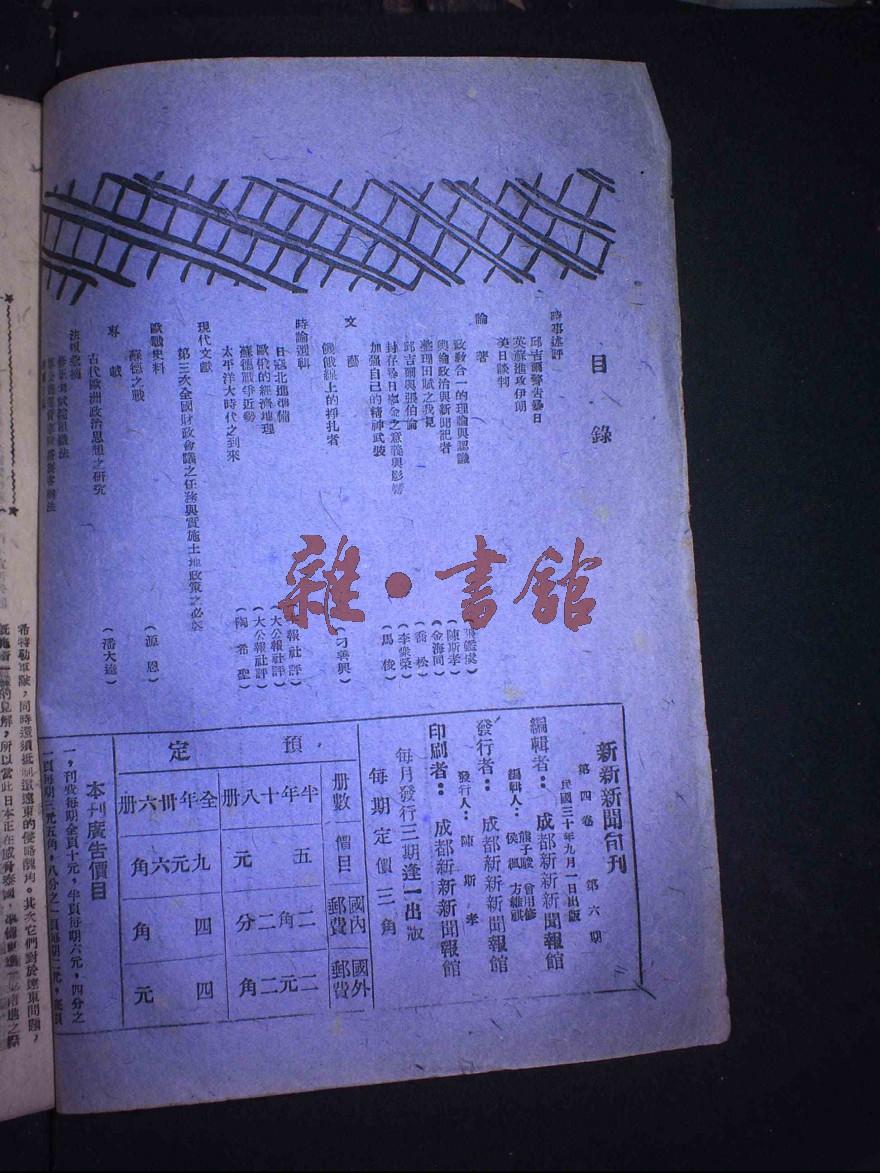 目錄
時事述評
邱吉爾警告暴日
英蘇進攻伊朗
美日談判
論著
政教合一的理論與認識
輿論政治與新聞記者
整理田賦之我見
邱吉爾與張伯倫
封存每日資金之意義與影響
加強自己的精神武裝
文藝
饑餓線上的掙扎者
時論選輯
日寇北進準備
歐俄的經濟地理
蘇德戰爭近勢
太平洋大時代之到來
現代文獻
第三次全國財政會議之任務與實施土地政策之必要
歐戰史料
蘇德之戰
專載
古代歐洲政治思想之研究
法規彙編
(陳斯孝)
(金海同)
(喬松)
(李樂榮)
(馬俊)
(刁善興)
(大公報社評)
(大公報社評)
(陶希聖)
(源恩)
(潘大逵)
雜·書館
新新新聞旬刊
第四卷 第六期
民國三十年九月一日出版
編輯者:成都新新新聞報館
編輯人:熊子駿 曾用修 侯楓 方繼祺
發行者:成都新新新聞報館
發行人:陳斯孝
印刷者:成都新新新聞報館
每月發行三期逢一出版
每期定價三角
預定
册數 價目 國內郵費 國外郵費
半年十八册 五元 二角二分 二元二角
全年卅六册 九元六角 四角 四元
本刊廣告價目
一,刊費每期全頁十元,半頁每期六元,四分之
一頁每期三元五角,八分之一頁每期二元,
希特勒軍隊,同時還須抵制遠東的侵略醜角。其次它們對於遠東問題,
的見解,所以當此日本正在威脅泰國,準備